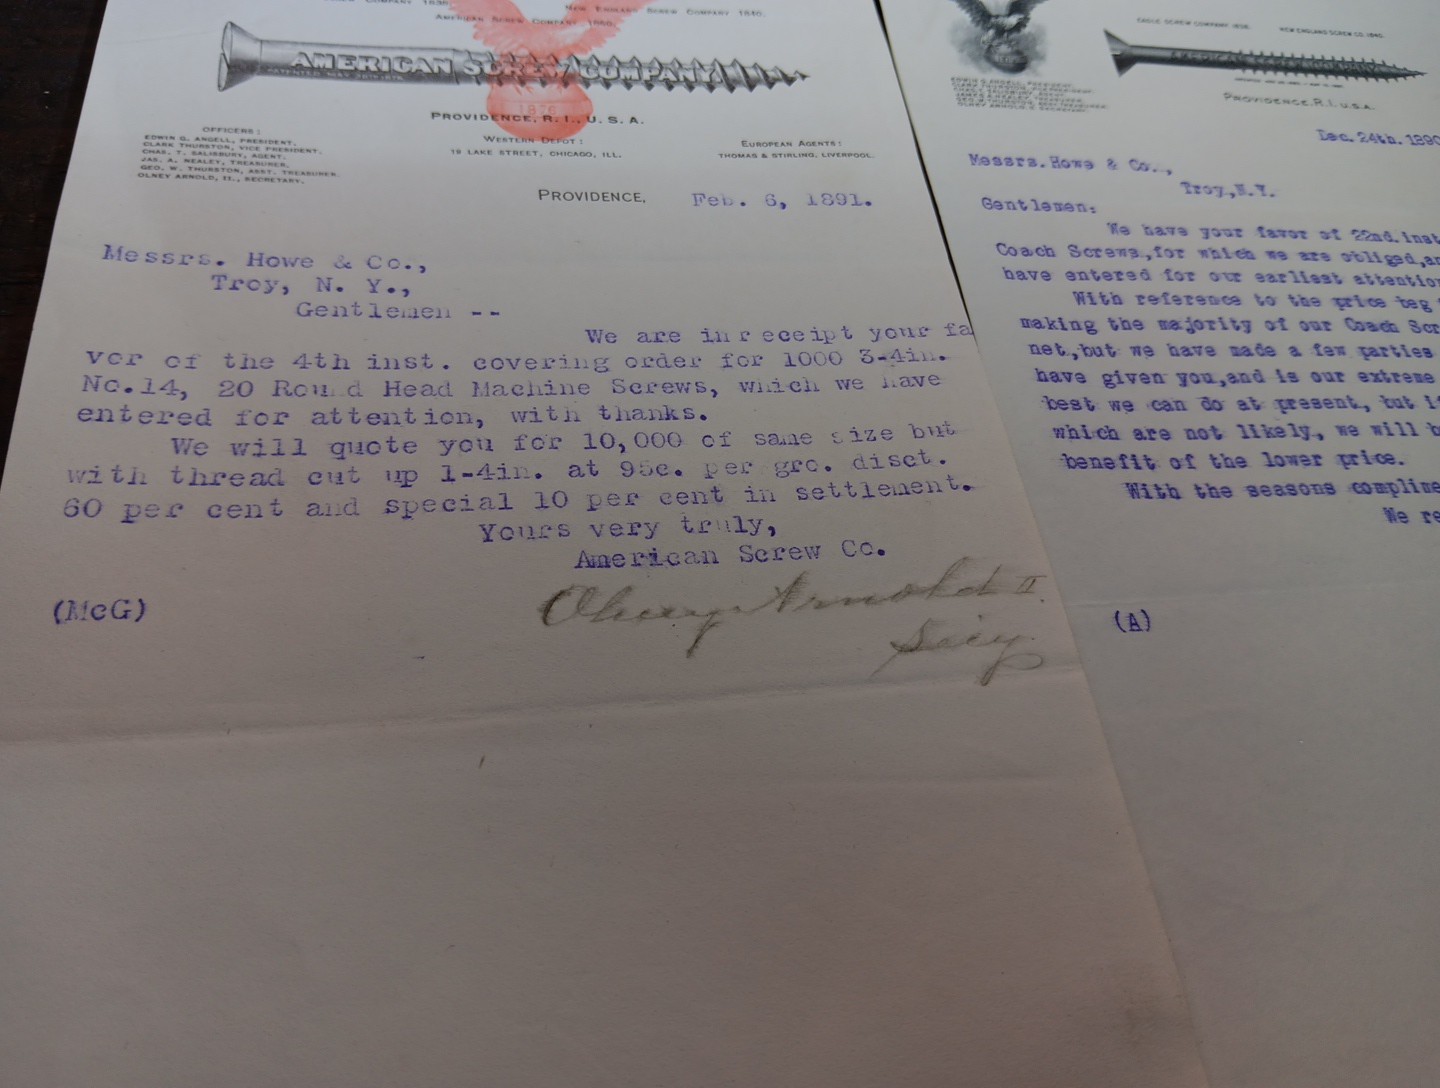 Screw Company 1838.
New England Screw Company 1840.
American Screw Company 1860.
AMERICAN SCREW COMPANY
PATENTED MAY 30TH 1876
1876
PROVIDENCE, R. I., U. S. A.
OFFICERS:
EDWIN G. ANGELL, PRESIDENT.
CLARK THURSTON, VICE PRESIDENT.
CHAS. T. SALISBURY, AGENT.
JAS. A. NEALEY, TREASURER.
GEO. W. THURSTON, ASST. TREASURER.
OLNEY ARNOLD, II., SECRETARY.
WESTERN DEPOT:
19 LAKE STREET, CHICAGO, ILL.
EUROPEAN AGENTS:
THOMAS & STIRLING, LIVERPOOL.
PROVIDENCE, Feb. 6, 1891.
Messrs. Howe & Co.,
Troy, N. Y.,
Gentlemen --
We are in receipt your fa
vor of the 4th inst. covering order for 1000 3-4in.
No.14, 20 Round Head Machine Screws, which we have
entered for attention, with thanks.
We will quote you for 10,000 of same size but
with thread cut up 1-4in. at 95c. per gro. disct.
60 per cent and special 10 per cent in settlement.
Yours very truly,
American Screw Co.
Olney Arnold II
Secy
(McG)
EAGLE SCREW COMPANY 1838.
NEW ENGLAND SCREW CO. 1840.
EDWIN G. ANGELL, PRESIDENT.
CLARK THURSTON, VICE PRESIDENT.
CHAS. T. SALISBURY, AGENT.
JAMES A. NEALEY, TREASURER.
GEO. W. THURSTON, ASST. TREASURER.
OLNEY ARNOLD II, SECRETARY.
PROVIDENCE, R.I. U.S.A.
Dec. 24th. 1890
Messrs. Howe & Co.,
Troy,N.Y.
Gentlemen:
We have your favor of 22nd. inst
Coach Screws,for which we are obliged,an
have entered for our earliest attention
With reference to the price beg
making the majority of our Coach Scr
net.,but we have made a few parties
have given you,and is our extreme
best we can do at present, but i
which are not likely, we will b
benefit of the lower price.
With the seasons complime
We re
(A)